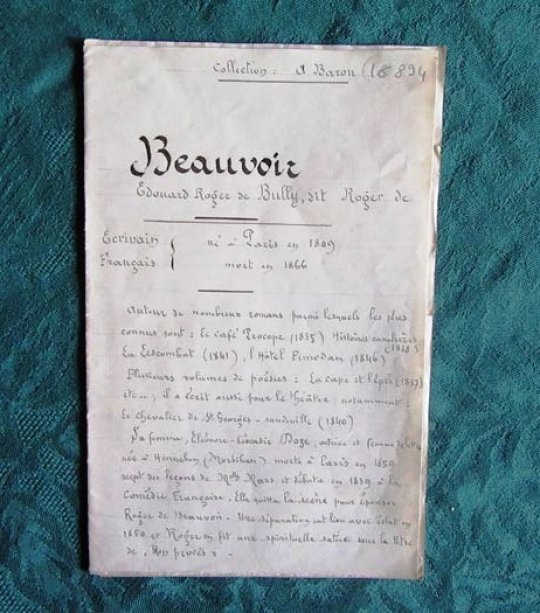 Collection : A Baron (18894
Beauvoir
Edouard Roger de Bully, dit Roger de
Ecrivain Français { né à Paris en 1809
mort en 1866
Auteur de nombreux romans parmi lesquels les plus
connus sont : le café Procope (1835) Histoires cavalières (1838)
La Lescombat (1841), l'Hôtel Pimodan (1846)
Plusieurs volumes de poésies : La cape et l'épée (1837)
etc.., il a écrit aussi pour le théâtre, notamment :
le Chevalier de St Georges - vaudeville (1840)
Sa femme, Eléonore-Léocadie Doze, actrice et femme de
née à Hennebon (Morbihan) morte à Paris en 1859
reçut des leçons de Melle Mars et débuta en 1839 à la
Comédie Française. Elle quitta la scène pour épouser
Roger de Beauvoir. Une séparation eut lieu avec éclat en
1850 et Roger en fit une spirituelle satire sous le titre
de " Mon procès ".